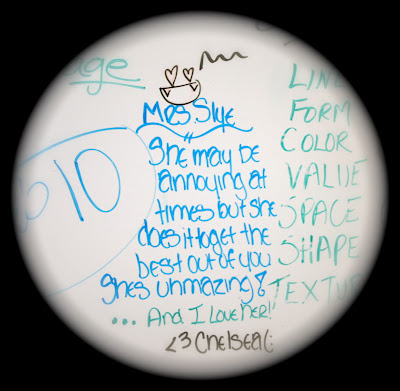 Mrs. Slye
"She may be
annoying at
times but she
does it to get the
best out of you
She's unmazing!
... And I Love Her!"
<3 Chelsea (:
10
LINE
FORM
COLOR
VALUE
SPACE
SHAPE
TEXTUR